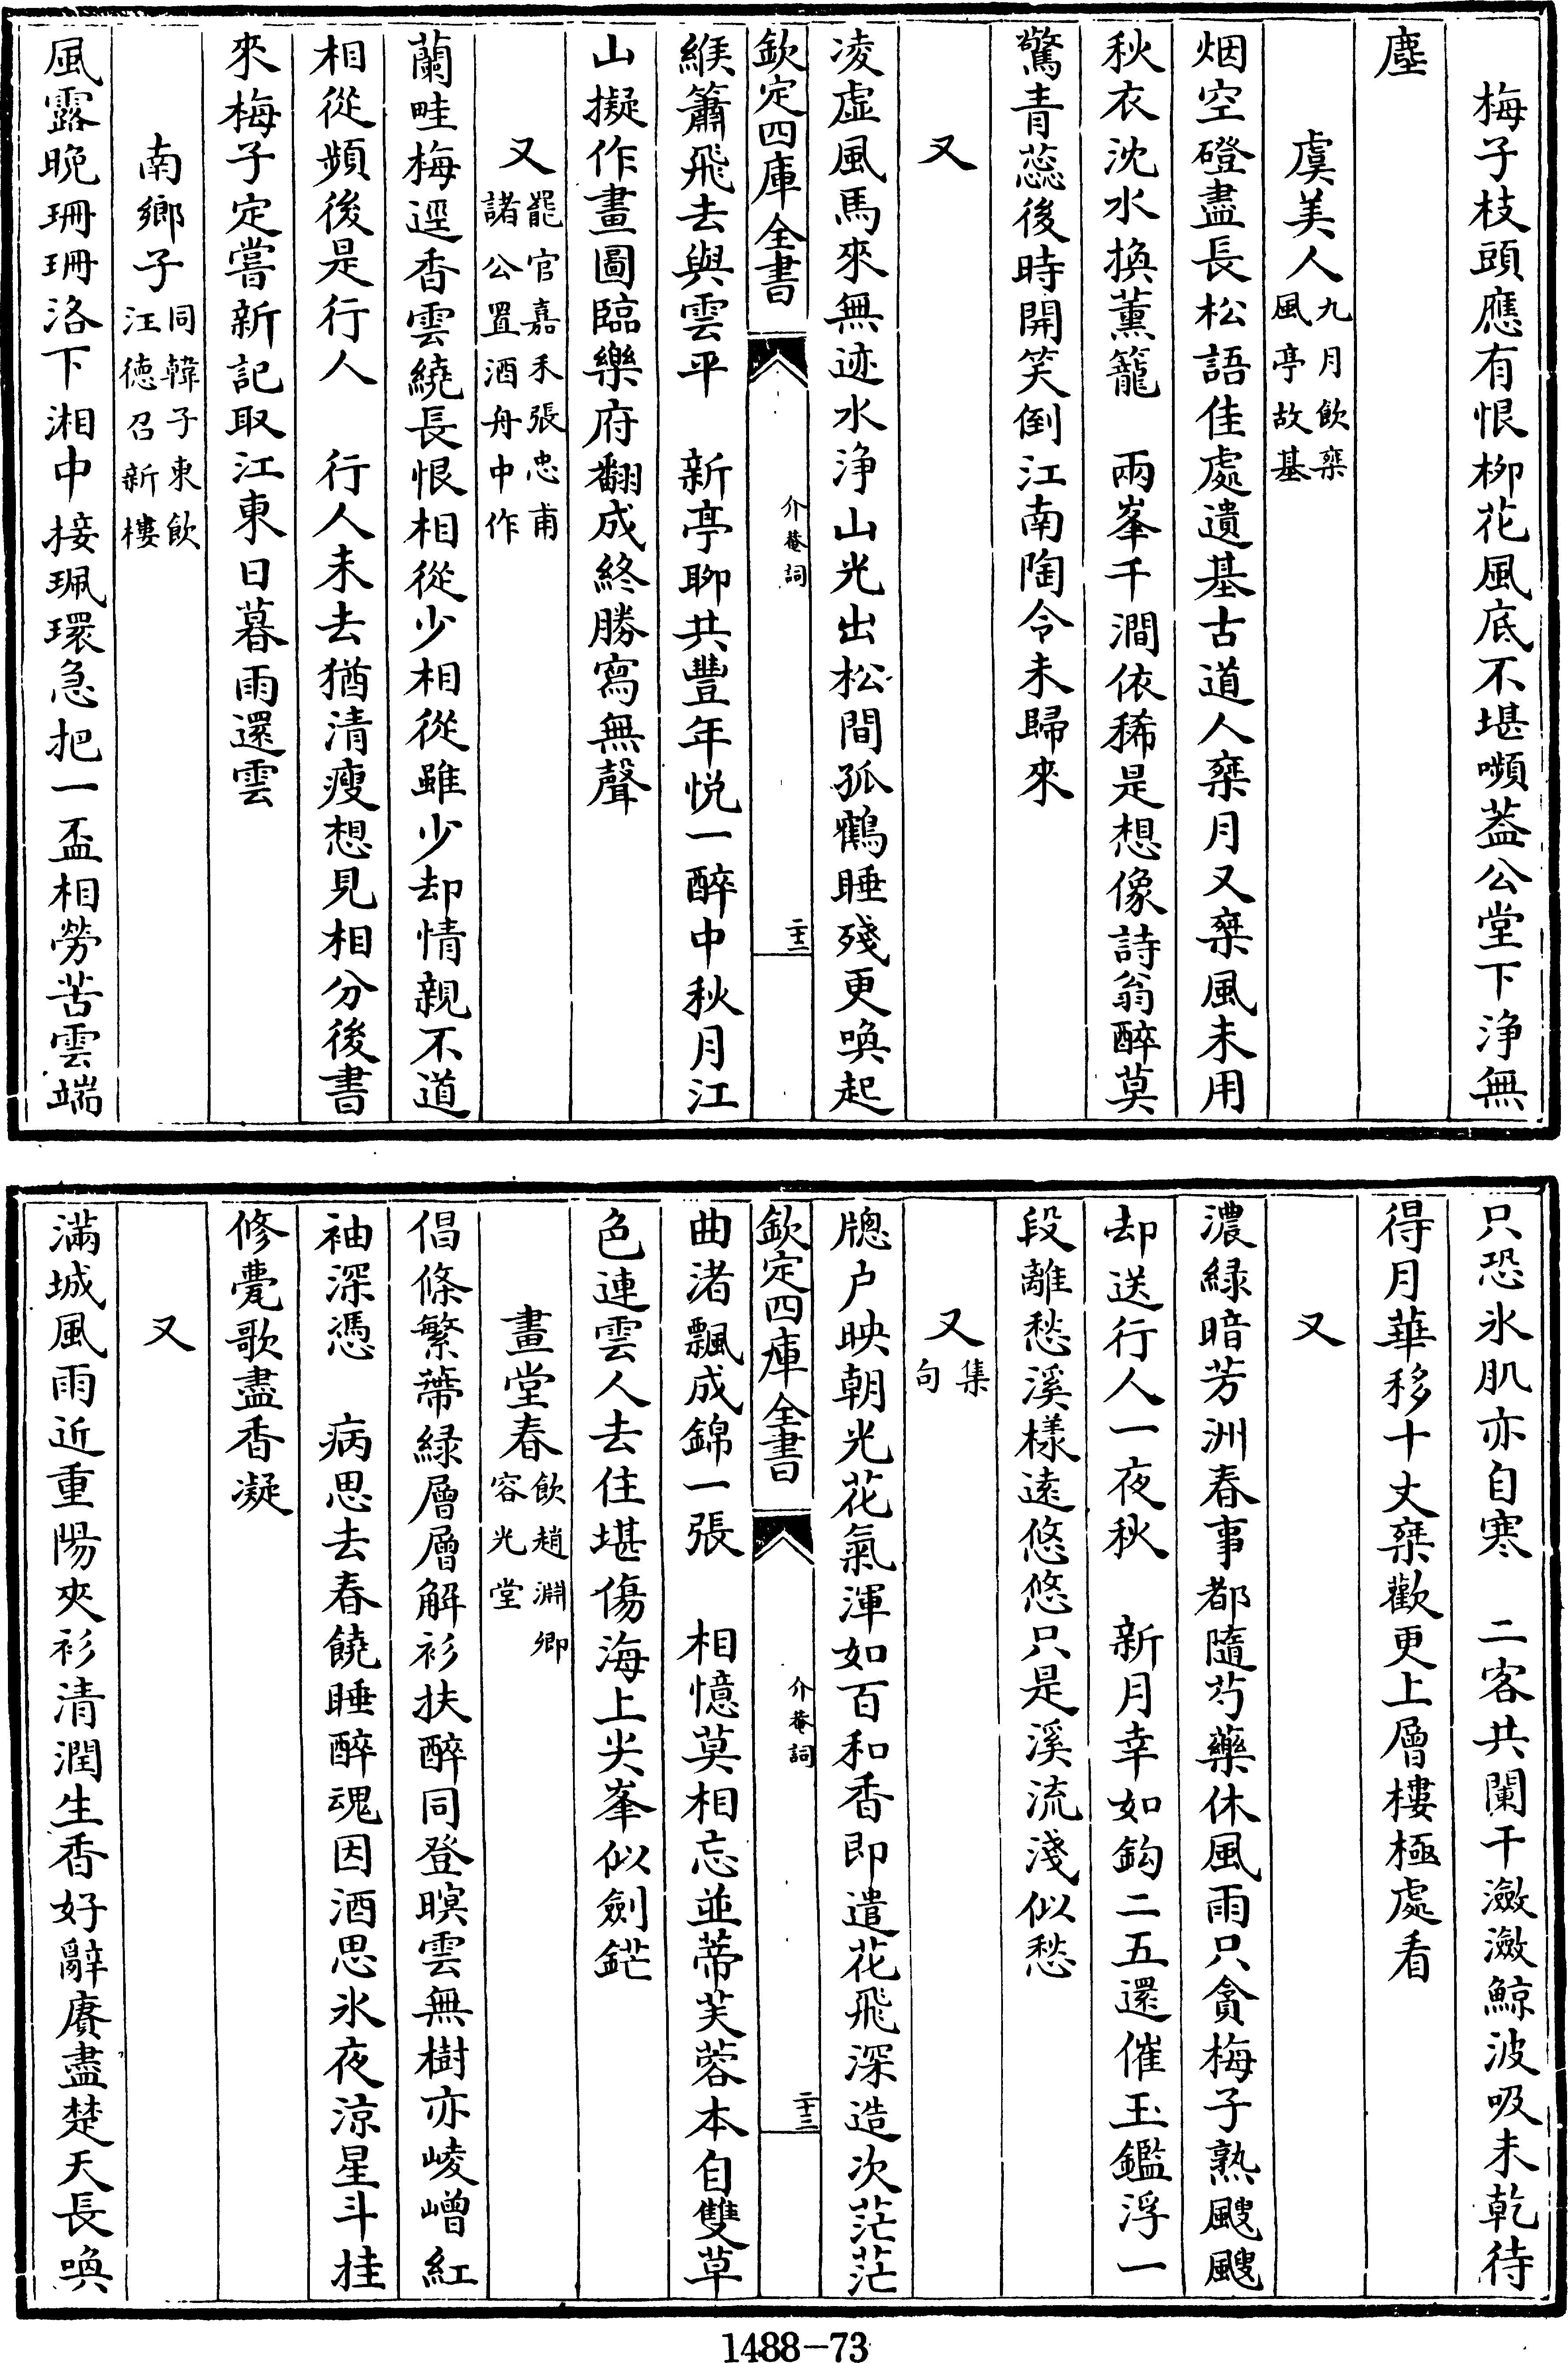 梅子枝頭應有恨柳花風底不堪嚬葢公堂下浄無
塵
虞美人九月飲欒風亭故基
烟空磴盡長松語佳處遺基古道人欒月又欒風未用
秋衣沈水換薰籠　兩峯千澗依稀是想像詩翁醉莫
驚青蕊後時開笑倒江南陶令未歸來
又
凌虛風馬來無迹水浄山光出松間孤鶴睡殘更喚起
欽定四庫全書
介菴詞
二十二
緱簫飛去與雲平　新亭聊共豐年悅一醉中秋月江
山擬作畫圖臨樂府翻成終勝寫無聲
又罷官嘉禾張忠甫諸公置酒舟中作
蘭畦梅逕香雲繞長恨相從少相從雖少却情親不道
相從頻後是行人　行人未去猶清瘦想見相分後書
來梅子定嘗新記取江東日暮雨還雲
南鄉子同韓子東飲汪德召新樓
風露晚珊珊洛下湘中接珮環急把一盃相勞苦雲端
只恐氷肌亦自寒　二客共闌干瀲瀲鯨波吸未乾待
得月華移十丈欒歡更上層樓極處看
又
濃緑暗芳洲春事都隨芍藥休風雨只貪梅子熟颼颼
却送行人一夜秋　新月幸如鈎二五還催玉鑑浮一
段離愁溪樣遠悠悠只是溪流淺似愁
又集句
牕户映朝光花氣渾如百和香即遣花飛深造次茫茫
欽定四庫全書
介菴詞
二十三
曲渚飄成錦一張　相憶莫相忘並蒂芙蓉本自雙草
色連雲人去住堪傷海上尖峯似劍鋩
畫堂春飲趙淵卿容光堂
倡條繁蔕緑層層解衫扶醉同登暝雲無樹亦崚嶒紅
袖深憑　病思去春饒睡醉魂因酒思氷夜涼星斗挂
修甍歌盡香凝
又
滿城風雨近重陽夾衫清潤生香好辭賡盡楚天長喚
1488-73